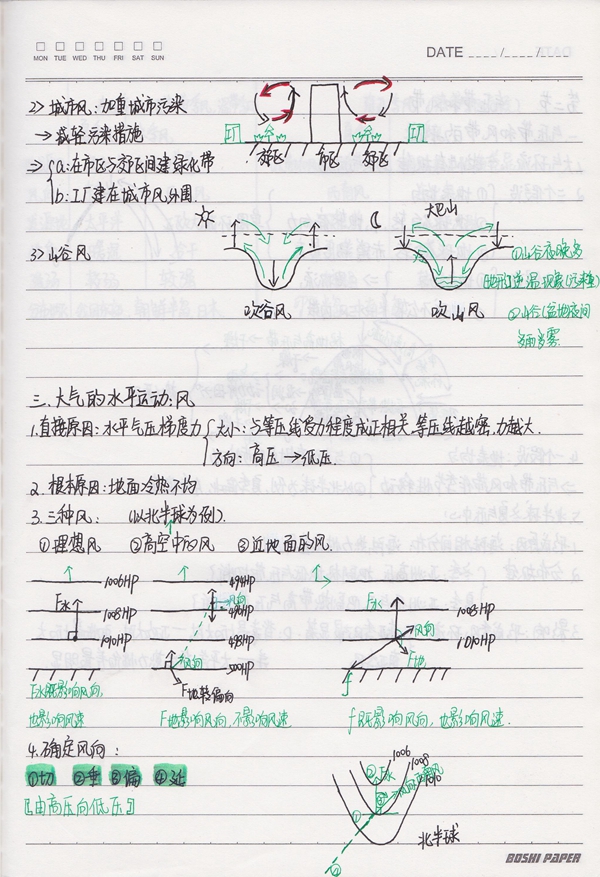 MON TUE WED THU FRI SAT SUN
DATE ____/____/____
2> 城市风:加重城市污染
→ 减轻污染措施
⇒ a:在市区与郊区间建绿化带
b:工厂建在城市风外围.
工厂 工厂
郊区 市区 郊区
3> 山谷风
吹谷风
大巴山
吹山风
①山谷夜晚多
地形逆温现象(污染重)
②山谷(盆地夜间
多雨多雾.
三.大气的水平运动:风
1.直接原因:水平气压梯度力 大小:与等压线
程度成正相关.等压线越密,力越大.
方向:高压→低压.
2.根本原因:地面冷热不均
3.三种风: (以北半球为例).
①理想风 ②高空中的风 ③近地面的风.
1006HP
F水
1008HP
1010HP
F水既影响风向,
也影响风速
494HP
风向
498HP
风向
500HP
F地转偏向
F地影响风向,不影响风速
F水
1008HP
风向
1010HP
F地
f
f既影响风向,也影响风速.
4.确定风向:
①切 ②垂 ③偏 ④延
[由高压向低压]
1006
1008
1010
② F水
①
④
北半球
BOSHI PAPER